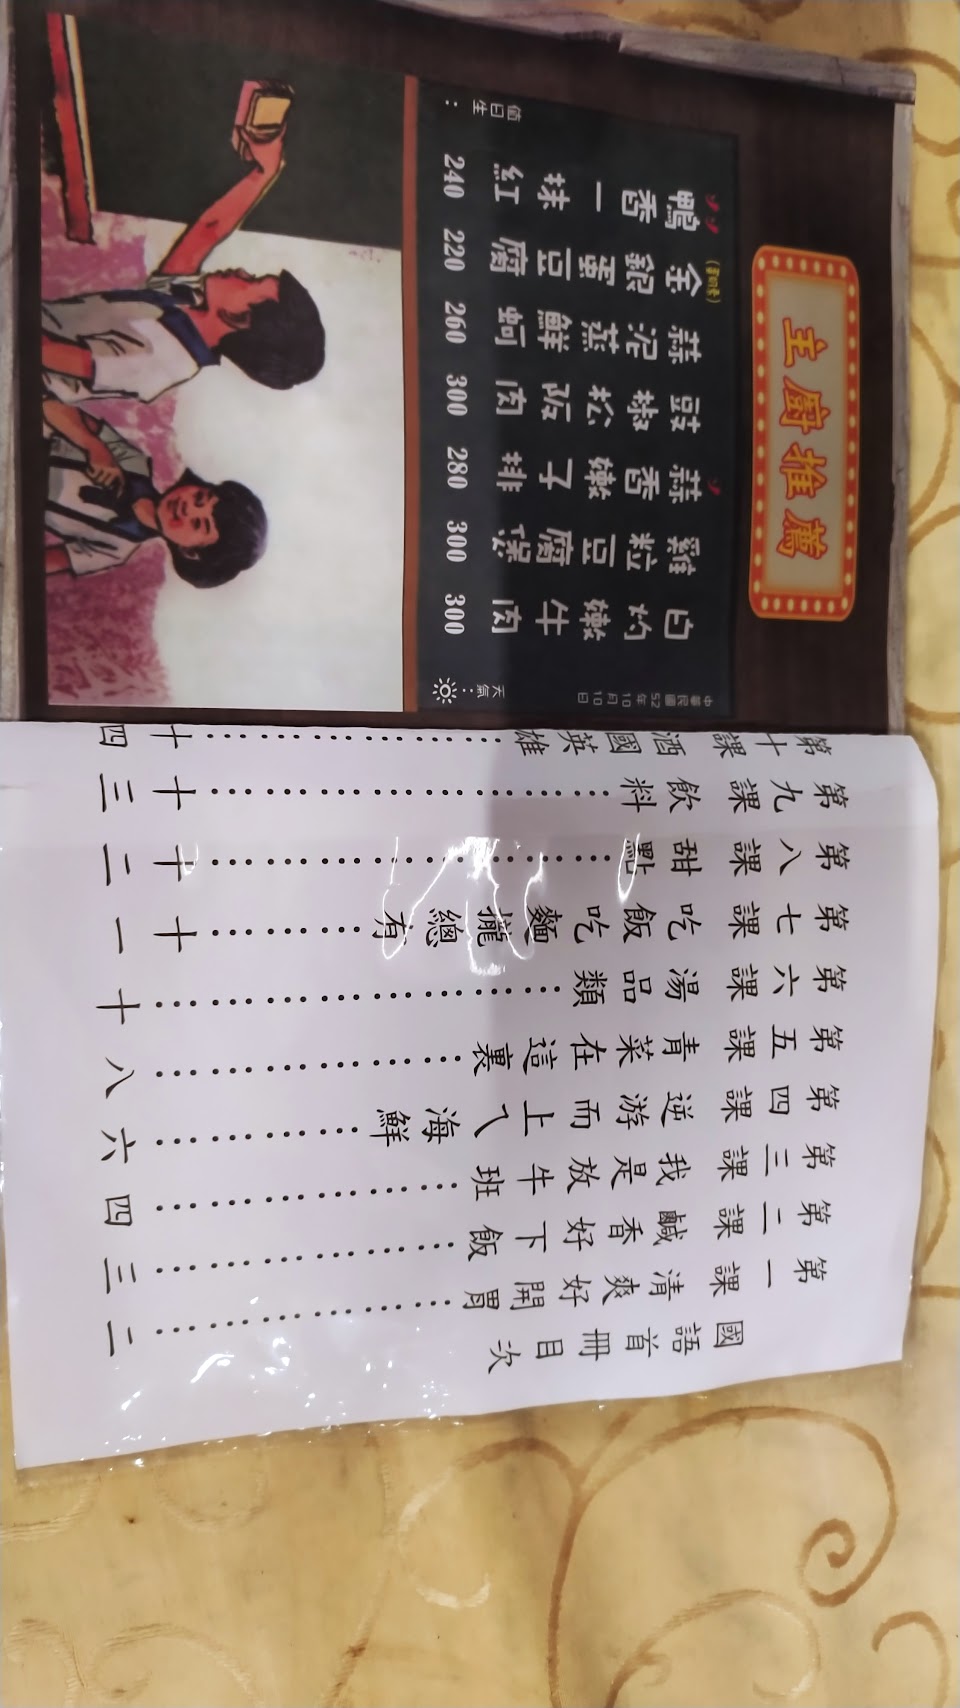 國語首冊目次
第一課 清爽好開胃………………二
第二課 鹹香好下飯………………三
第三課 我是放牛班………………四
第四課 逆游而上ㄟ海鮮…………六
第五課 青菜在這裏………………八
第六課 湯品類……………………十
第七課 吃飯吃麵攏總有…………十一
第八課 甜點………………………十二
第九課 飲料………………………十三
第十課 酒國英雄…………………十四
主廚推薦
中華民國52年10月10日
天氣：
白灼嫩牛肉 300
雞粒豆腐煲 300
蒜香嫩子排 280
豉椒松阪肉 300
蒜泥蒸鮮蚵 260
金銀蛋豆腐 220
鴨香一抹紅 240
值日生：